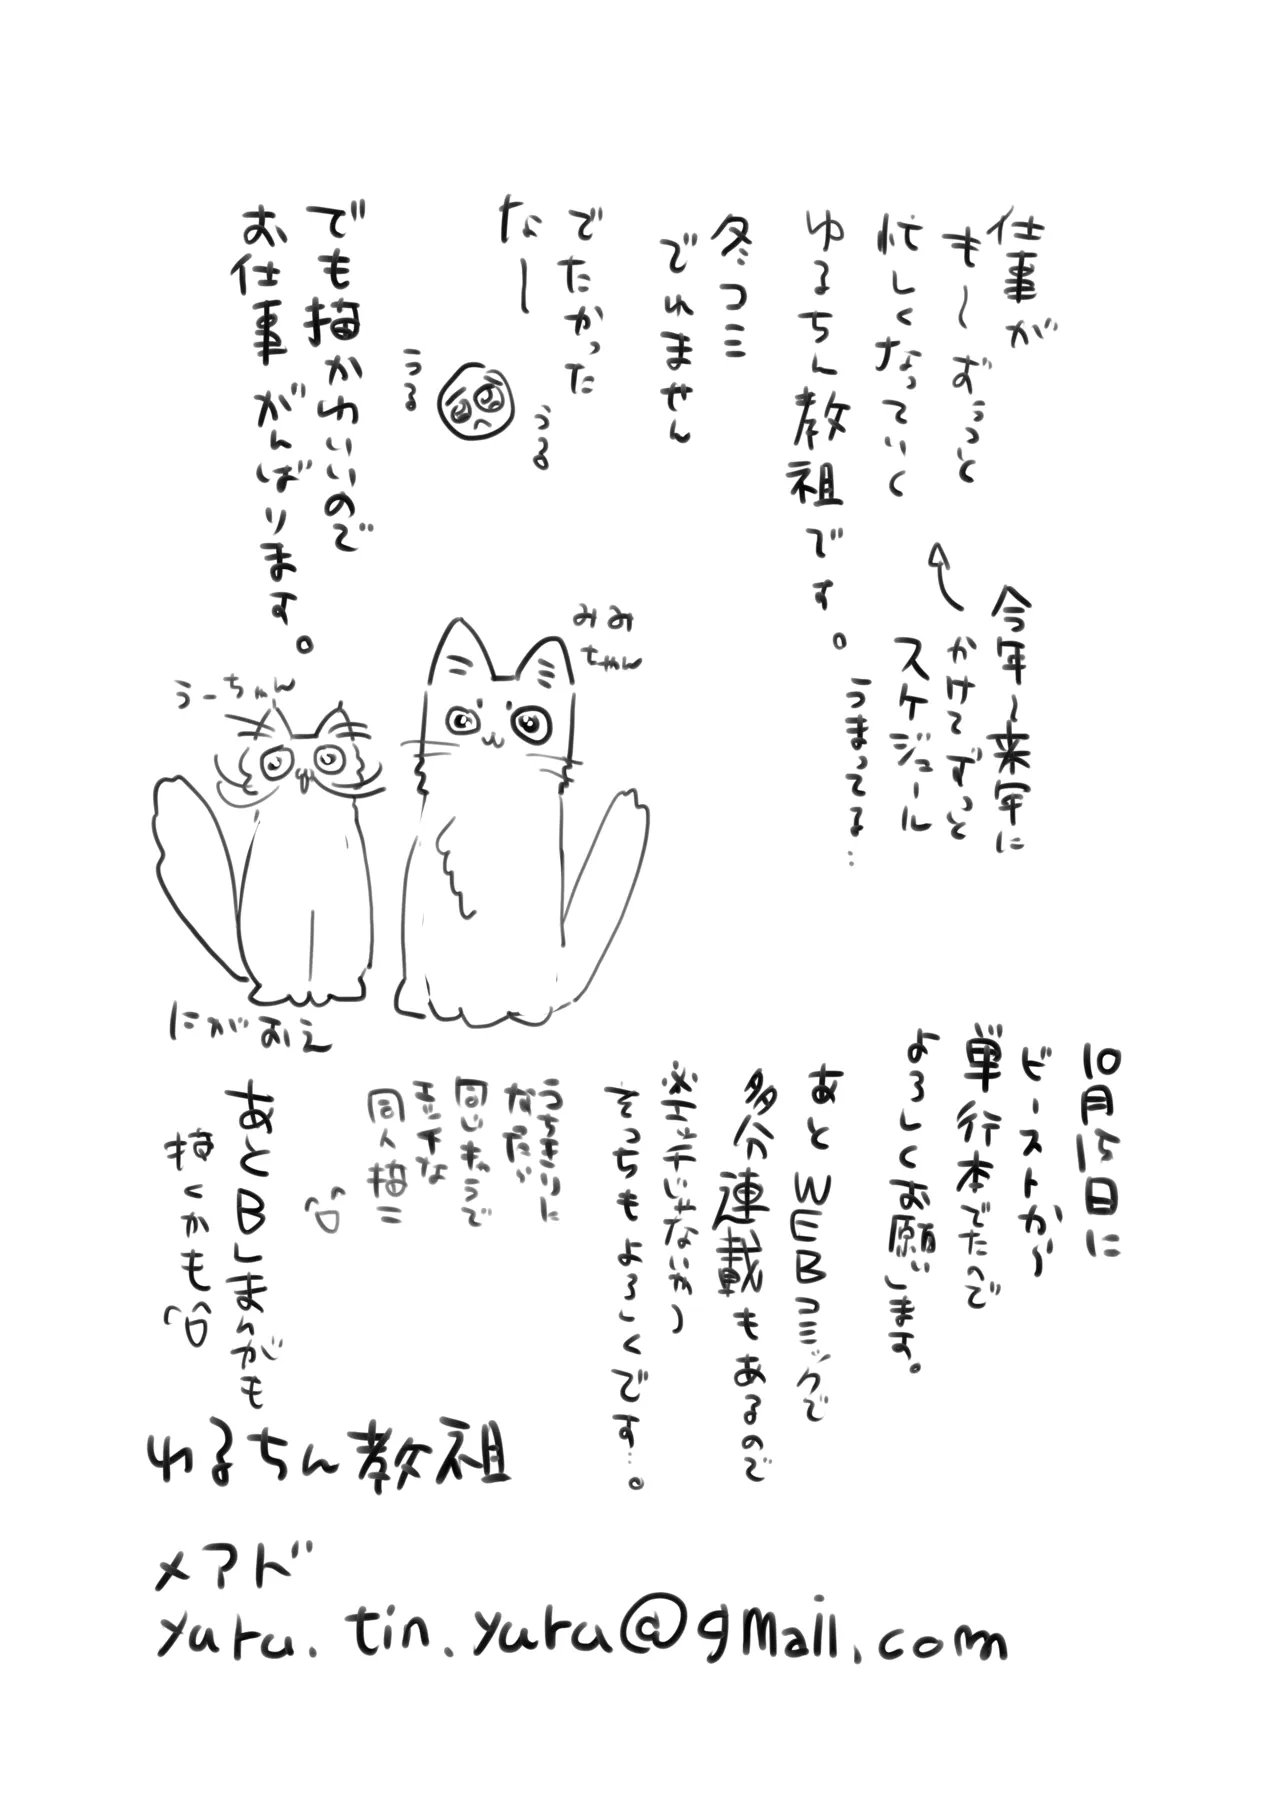 仕事が
も〜ずうっと
忙しくなっていく
ゆるちん教祖です。
冬コミ
でれません
でたかった
なー
うる
うる
でも描かわいいので
お仕事がんばります。
今年〜来年に
かけてずっと
スケジュール
うまってる…
みみ
ちゃん
うーちゃん
にがおえ
10月15日に
ビーストから
単行本でたので
よろしくお願いします。
あとWEBコミックで
多分連載もあるので
※エッチじゃないわ)
そっちもよろしくです…。
うちきりに
なったら
同じキャラで
エッチな
同人描こ
あとBLまんがも
描くかも
ゆるちん教祖
メアド
yuru.tin.yuru@gmail.com